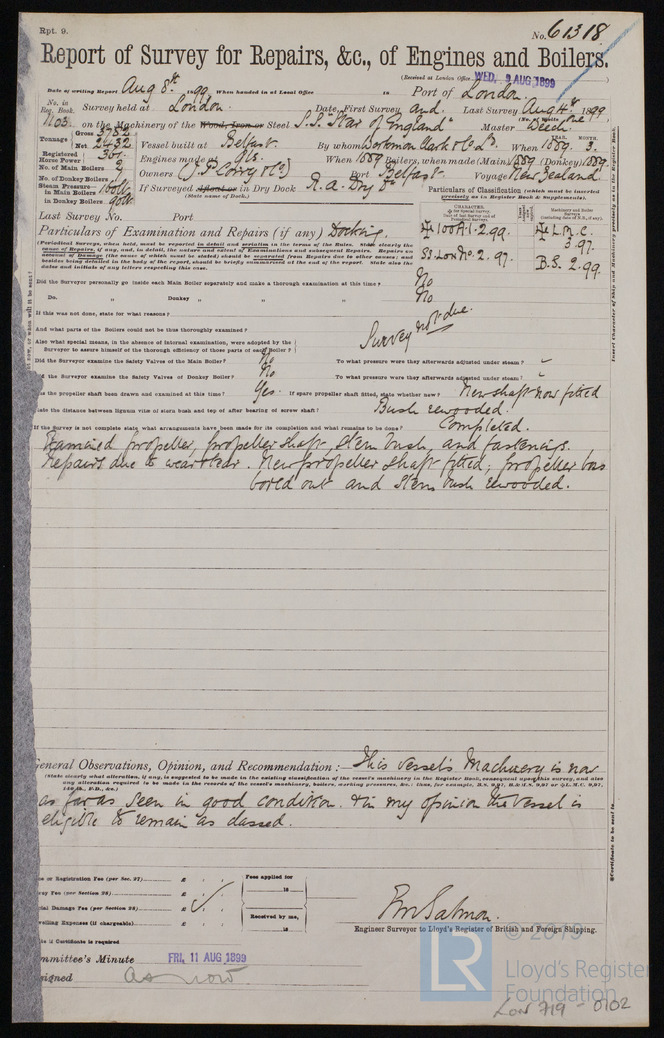 Rpt. 9.
No. 61318
Report of Survey for Repairs, &c., of Engines and Boilers.
(Received at London Office WED. 9 AUG 1899)
Date of writing Report Aug 8th 1899 When handed in at Local Office 18 Port of London
No. in Reg. Book. Survey held at London Date, First Survey and Last Survey Aug 4th 1899
1103 on the Machinery of the Wood, Iron or Steel S.S. "Star of England" Master Weech
(No. of Visits One)
Tonnage Gross 3782 Net 2432
Vessel built at Belfast By whom Workman Clark & Co Ld When 1889 YEAR. MONTH. 3.
Registered Horse Power 301
Engines made at Gls. When 1889 Boilers, when made (Main) 1889 (Donkey) 1889
No. of Main Boilers 2
Owners (J. P. Corry & Co) Port Belfast Voyage New Zealand
No. of Donkey Boilers
Steam Pressure— in Main Boilers 160 lb
in Donkey Boilers
If Surveyed Afloat or in Dry Dock R. A. Dry Dk
(State name of Dock.)
Particulars of Classification (which must be inserted precisely as in Register Book & Supplements).
Last Survey No. Port
CHARACTER.
Machinery and Boiler Surveys
100A1 2.99
SS. Lon No. 2. 97.
L.M.C. 3.97.
B.S. 2.99.
Particulars of Examination and Repairs (if any) Docking.
(Periodical Surveys, when held, must be reported in detail and seriatim in the terms of the Rules. State clearly the
cause of Repairs, if any, and, in detail, the nature and extent of Examinations and subsequent Repairs. Repairs on
account of Damage (the cause of which must be stated) should be separated from Repairs due to other causes; and
besides being detailed in the body of the report, should be briefly summarised at the end of the report. State also the
dates and initials of any letters respecting this case.
Did the Surveyor personally go inside each Main Boiler separately and make a thorough examination at this time? No
Do. " Donkey " " " No
If this was not done, state for what reasons?
Survey not due.
And what parts of the Boilers could not be thus thoroughly examined?
Also what special means, in the absence of internal examination, were adopted by the
Surveyor to assure himself of the thorough efficiency of those parts of each Boiler?
Did the Surveyor examine the Safety Valves of the Main Boiler? No To what pressure were they afterwards adjusted under steam?
Did the Surveyor examine the Safety Valves of Donkey Boiler? No To what pressure were they afterwards adjusted under steam?
the propeller shaft been drawn and examined at this time? Yes. If spare propeller shaft fitted, state whether new? New shaft now fitted
State the distance between lignum vitæ of stern bush and top of after bearing of screw shaft? Bush rewooded.
If the Survey is not complete state what arrangements have been made for its completion and what remains to be done? Completed.
Examined propeller, propeller shaft, stern bush, and fastenings.
Repairs due to wear & tear. New propeller shaft fitted, propeller boss
bored out and stern bush rewooded.
General Observations, Opinion, and Recommendation :— This vessel's Machinery is now
(State clearly what alteration, if any, is suggested to be made in the existing classification of the vessel's machinery in the Register Book, consequent upon this survey, and also
any alteration required to be made in the records of the vessel's machinery, boilers, working pressures, &c.: thus, for example, B.S. 9.97, B.&M.S. 9.97 or L.M.C. 9.97,
as far as seen in good condition. & in my opinion the vessel is
eligible to remain as classed.
or Registration Fee (per Sec. 27) £ : : Fees applied for
Fee (per Section 28) £ : : 18
Damage Fee (per Section 28) £ : : Received by me,
Travelling Expenses (if chargeable) £ : : 18
if Certificate is required
Salmon.
Engineer Surveyor to Lloyd's Register of British and Foreign Shipping.
Committee's Minute FRI. 11 AUG 1899
Assigned as now
LR © 2019
Lloyd's Register
Foundation
Lon 719 - 0102